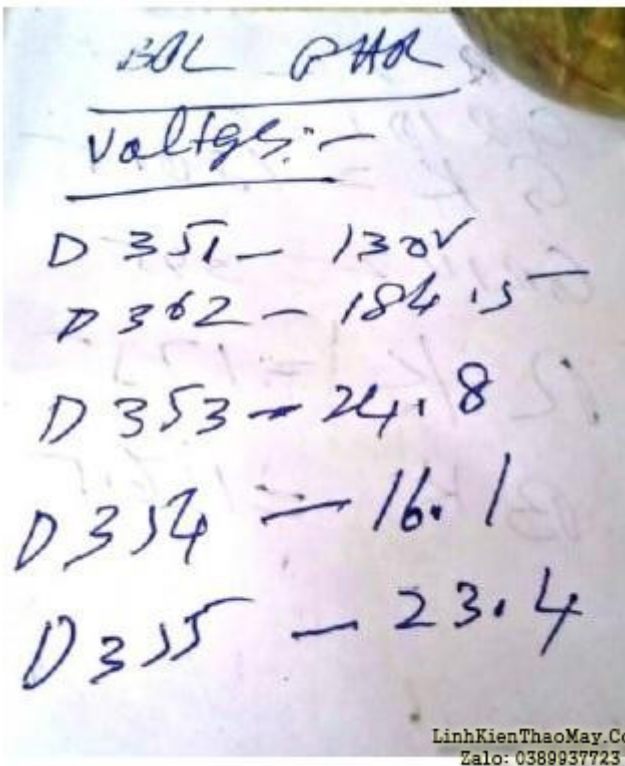 BOL
Voltge:-
D 351 - 130V
D 362 - 184.5
D 353 - 24.8
D 354 - 16.1
D 355 - 23.4
LinhKienThaoMay.Co
Zalo: 0389937723